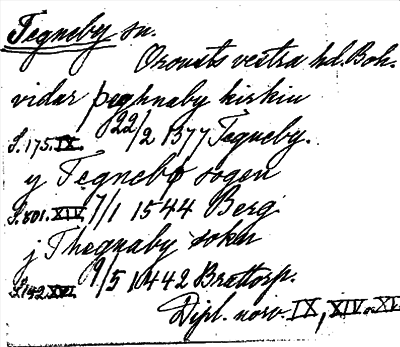 Tegneby sn.
Orousts vestra hd. Boh.
vidar þeghnaby kirkiu
22/2 1377 Tegneby.
S. 175. IX.
y Tegnebø sogen
S. 801. XIV. 7/1 1544 Berg
j Thegnaby sokn
S. 142 XVI. 9/5 1442 Brattorp.
Dipl. norv. IX, XIV o. XVI